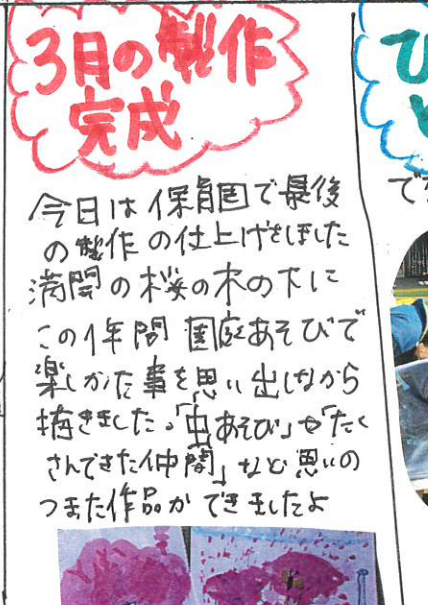 3月の製作
完成
今日は保育園で最後
の製作の仕上げをしました
満開の桜の木の下に
この1年間 園庭あそびで
楽しかった事を思い出しながら
描きました。「虫あそび」や「たく
さんできた仲間」など思いの
つまった作品ができましたよ
ひ
で